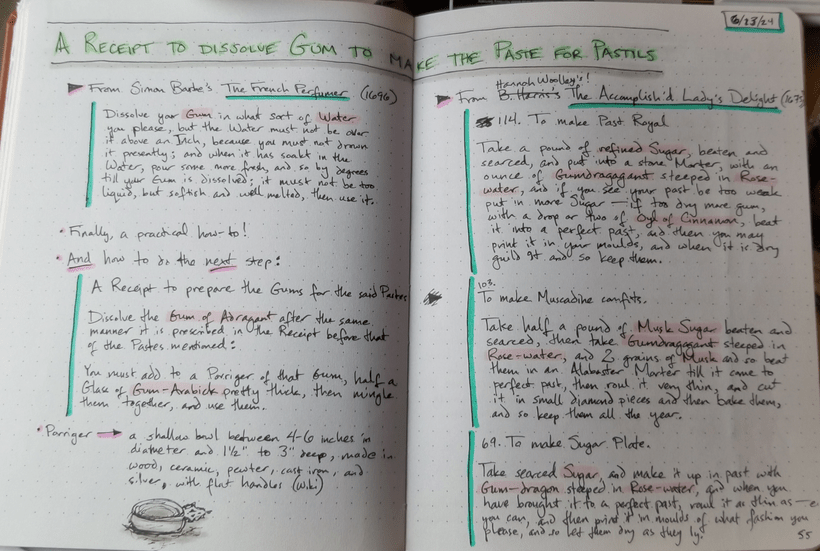 A RECEIPT TO DISSOLVE GUM TO MAKE THE PASTE FOR PASTILS
From Simon Barbe's The French Perfumer (1696)
Dissolve your Gum in what sort of Water
you please, but the Water must not be over
it above an Inch, because you must not drown
it presently; and when it has soakt in the
Water, pour some more fresh, and so by degrees
till your Gum is dissolved; it must not be too
liquid, but softish and well melted, then use it.
• Finally, a practical how-to!
• And how to do the next step:
A Receipt to prepare the Gums for the said Pastes
Dissolve the Gum of Adragant after the same
manner it is prescribed in the Receipt before that
of the Pastes mentioned:
You must add to a Porriger of that Gum, half a
Glase of Gum-Arabick pretty thick, then mingle
them together, and use them.
• Porriger → a shallow bowl between 4-6 inches in
diameter and 1½" to 3" deep, made in
wood, ceramic, pewter, cast iron, and
silver, with flat handles (Wiki)
6/23/24
Hannah Woolley's!
From B. Harris's The Accomplish'd Lady's Delight (1675)
114. To make Past Royal
Take a pound of refined Sugar, beaten and
searced, and put into a stone Morter, with an
ounce of Gumdragagant steeped in Rose-
water, and if you see your past be too weak
put in more Sugar — if too dry more gum,
with a drop or two of Oyl of Cinnamon, beat
it into a perfect past, and then you may
print it in your moulds, and when it is dry
guild it and so keep them.
103.
To make Muscadine comfits.
Take half a pound of Musk Sugar beaten and
searced, then take Gumdragagant steeped in
Rose-water, and 2 grains of Musk and so beat
them in an Alabaster Morter till it come to
perfect past, then roul it very thin, and cut
it in small diamond pieces and then bake them,
and so keep them all the year.
69. To make Sugar Plate.
Take searced Sugar, and make it up in past with
Gum-dragon steeped in Rose-water, and when you
have brought it to a perfect past, roul it as thin as —e
you can, and then print it in moulds of what fashion you
please, and so let them dry as they ly.
55